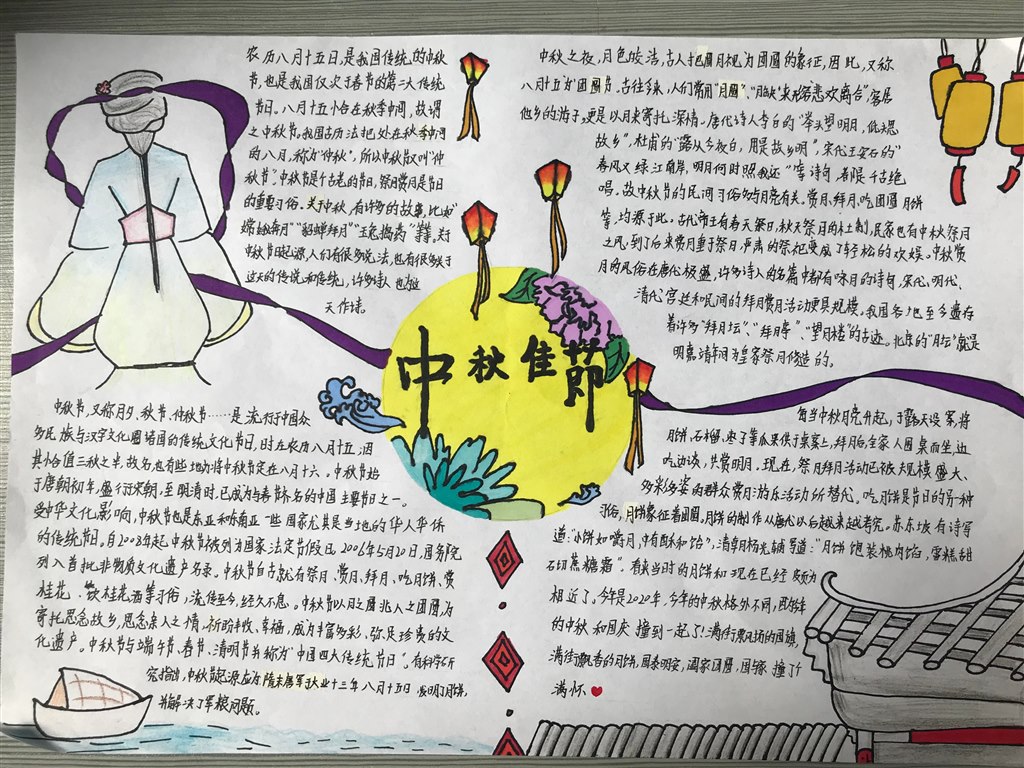 农历八月十五日,是我国传统的中秋
节,也是我国仅次于春节的第二大传统
节日。八月十五恰在秋季中间,故谓
之中秋节。我国古历法把处在秋季中间
的八月,称为“仲秋”,所以中秋节又叫“仲
秋节”。中秋节是个古老的节日,祭月赏月是节日
的重要习俗。关于中秋,有许多的故事,比如
“嫦娥奔月”“貂蝉拜月”“玉兔捣药”等等,关于
中秋节起源,人们有很多说法,也有很多关于
这天的传说和传统,许多诗人也为这
天作诗。
中秋之夜,月色皎洁,古人把圆月视为团圆的象征,因此,又称
八月十五为“团圆节。古往今来,人们常用“月圆”、“月缺”来形容悲欢离合”客居
他乡的游子,更是以月来寄托深情。唐代诗人李白的“举头望明月,低头思
故乡”,杜甫的“露从今夜白,月是故乡明”,宋代王安石的“
春风又绿江南岸,明月何时照我还”等诗句,都是千古绝
唱。故中秋节的民间习俗多与月亮有关。赏月、拜月、吃团圆月饼
等,均源于此。古代帝王有春天祭日,秋天祭月的礼制,民家也有中秋祭月
之风,到了后来赏月重于祭日,严肃的祭祀变成了轻松的欢娱。中秋赏
月的风俗在唐代极盛,许多诗人的名篇中都有咏月的诗句,宋代、明代、
清代宫廷和民间的拜月赏月活动更具规模。我国各地至今遗存
着许多“拜月坛”、“拜月亭”、“望月楼”的古迹。北京的“月坛”就是
明嘉靖年间为皇家祭月修造的。
中秋佳節
中秋节,又称月夕、秋节、仲秋节……是流行于中国众
多民族与汉字文化圈诸国的传统文化节日,时在农历八月十五;因
其恰值三秋之半,故名,也有些地方将中秋节定在八月十六。中秋节始
于唐朝初年,盛行于宋朝,至明清时,已成为与春节齐名的中国主要节日之一。
受中华文化影响,中秋节也是东亚和东南亚一些国家尤其是当地的华人华侨
的传统节日。自2008年起中秋节被列为国家法定节假日。2006年5月20日,国务院
列入首批非物质文化遗产名录。中秋节自古就有祭月、赏月、拜月、吃月饼、赏
桂花、饮桂花酒等习俗,流传至今,经久不息。中秋节以月之圆兆人之团圆,为
寄托思念故乡,思念亲人之情,祈盼丰收、幸福,成为丰富多彩、弥足珍贵的文
化遗产。中秋节与端午节、春节、清明节并称为“中国四大传统节日”。有科学研
究指出,中秋节起源应为隋末唐军于大业十三年八月十五日发明了月饼,
并解决了军粮问题。
每当中秋月亮升起,于露天设案,将
月饼、石榴、枣子等瓜果供于桌案上,拜月后,全家人围桌而坐,边
吃边谈,共赏明月。现在,祭月拜月活动已被规模盛大、
多彩多姿的群众赏月游乐活动所替代。吃月饼是节日的另一种
习俗,月饼象征着团圆。月饼的制作从唐代以后越来越考究。苏东坡有诗写
道:“小饼如嚼月,中有酥和饴”,清朝杨光辅写道:“月饼饱装桃肉馅,雪糕甜
砌蔗糖霜”。看来当时的月饼和现在已经颇为
相近了。今年是2020年,今年的中秋格外不同,因为今年
的中秋和国庆撞到一起了!满街飘扬的国旗,
满街飘香的月饼,国泰明安,阖家团圆,国缘撞了个
满怀